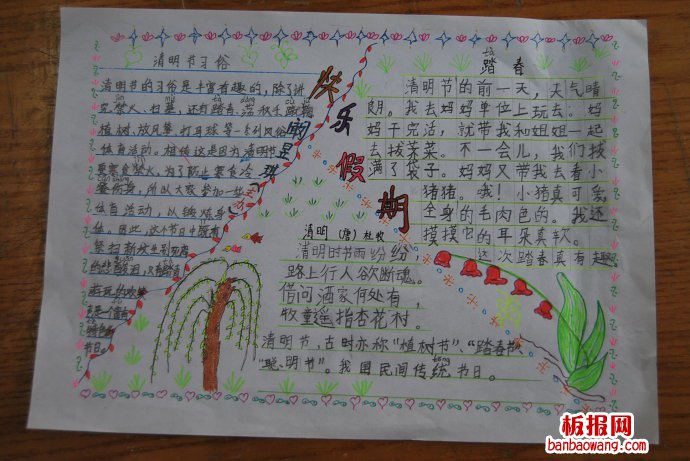 清明节习俗
清明节的习俗是丰富有趣的，除了讲
究禁火、扫墓，还有踏青、荡秋千、蹴鞠、
植树、放风筝、打马球等一系列风俗
体育活动。相传这是因为清明节
要寒食禁火，为了防止寒食冷
餐伤身，所以大家参加一些
体育活动，以锻炼身
体。因此，这个节日中既有
祭扫新坟生别死离
的悲酸泪，又有踏青
游玩的欢笑
声，是一个富有
特色的
节日。
快乐假期
清明 (唐) 杜牧
清明时节雨纷纷，
路上行人欲断魂。
借问酒家何处有，
牧童遥指杏花村。
清明节，古时亦称“植树节”、“踏春节”
“聪明节”。我国民间传统节日。
tà
踏春
清明节的前一天，天气晴
朗，我去妈妈单位上玩去。妈
妈干完活，就带我和姐姐一起
去拔荠菜。不一会儿，我们拔
满了袋子。妈妈又带我去看小
猪猪。哦！小猪真可爱，
全身的毛肉色的。我还
摸摸它的耳朵真软。
这次踏春真有趣。
板报网
banbaowang.com